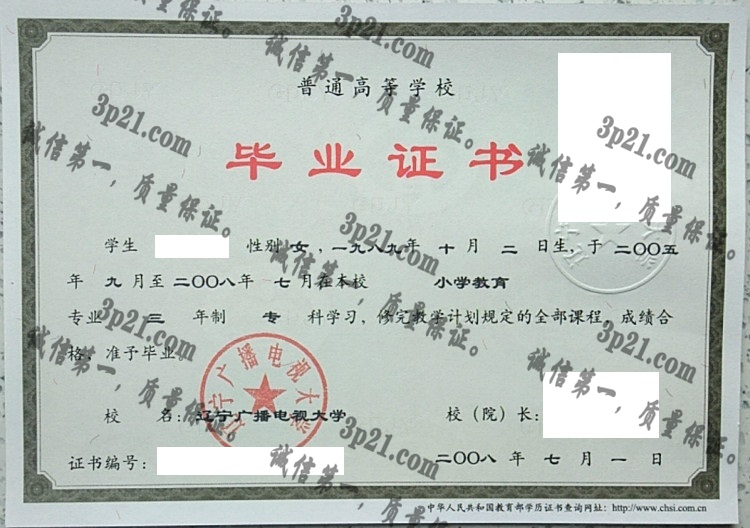 普通高等学校
毕业证书
学生 性别 女，一九八九年 十 月 二 日生，于 二〇〇五
年 九 月至 二〇〇八年 七 月在本校 小学教育
专业 三 年制 专 科学习，修完教学计划规定的全部课程，成绩合
格，准予毕业。
校 名：辽宁广播电视大学 校（院）长：
证书编号： 二〇〇八 年 七 月 一 日
中华人民共和国教育部学历证书查询网址：http://www.chsi.com.cn
辽宁广播电视大学
3p21.com
诚信第一，质量保证。
3p21.com
诚信第一，质量保证。
3p21.com
诚信第一，质量保证。
3p21.com
诚信第一，质量保证。
3p21.com
诚信第一，质量保证。
3p21.com
诚信第一，质量保证。
3p21.com
诚信第一，质量保证。